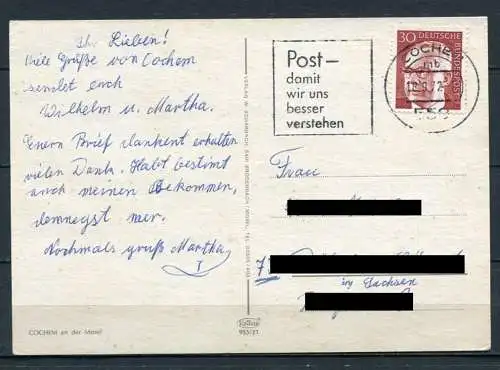 Ihr Lieben!
Viele Grüße von Cochem
sendet euch
Wilhelm u. Martha.
Euern Brief dankent erhalten
vielen Dank. Habt bestimt
auch meinen Bekommen,
demnegst mer.
Nochmals gruß Martha
COCHEM an der Mosel
Post–
damit
wir uns
besser
verstehen
30 DEUTSCHE BUNDESPOST
COCHEM
558
Frau
7
in Sachsen